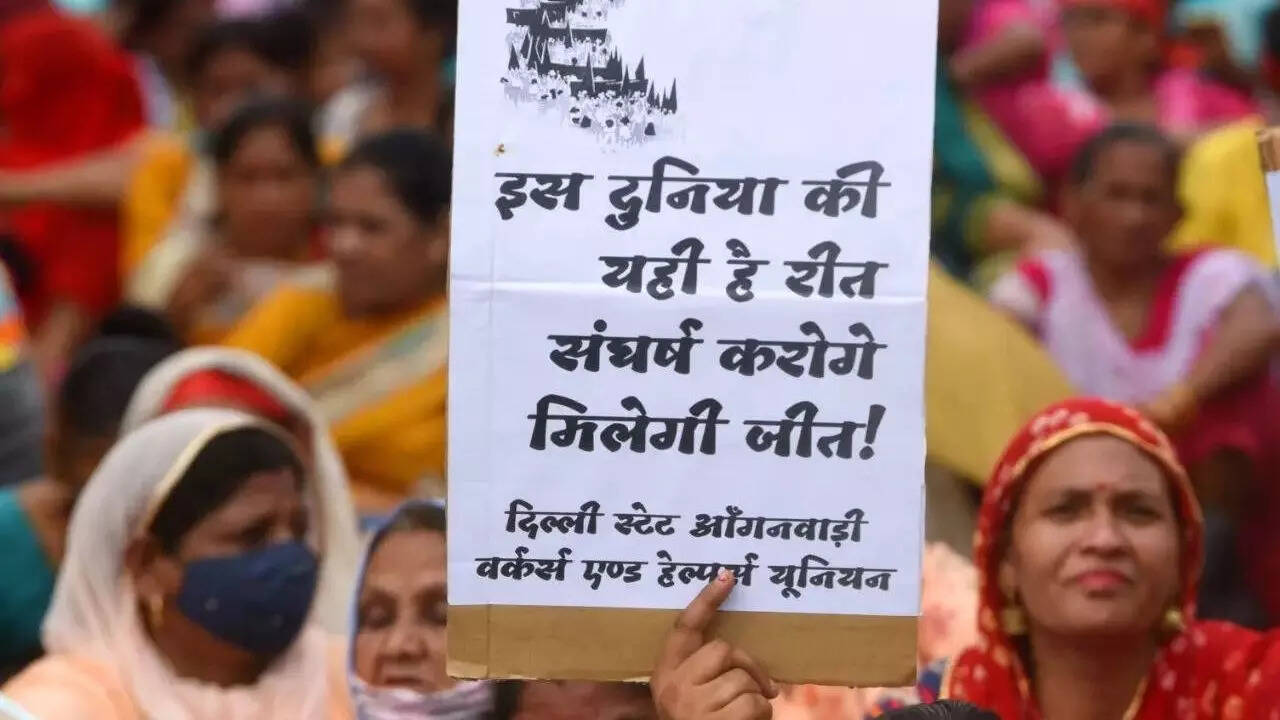 इस दुनिया की
यही है रीत
संघर्ष करोगे
मिलेगी जीत!
दिल्ली स्टेट आँगनवाड़ी
वर्कर्स एण्ड हेल्पर्स यूनियन